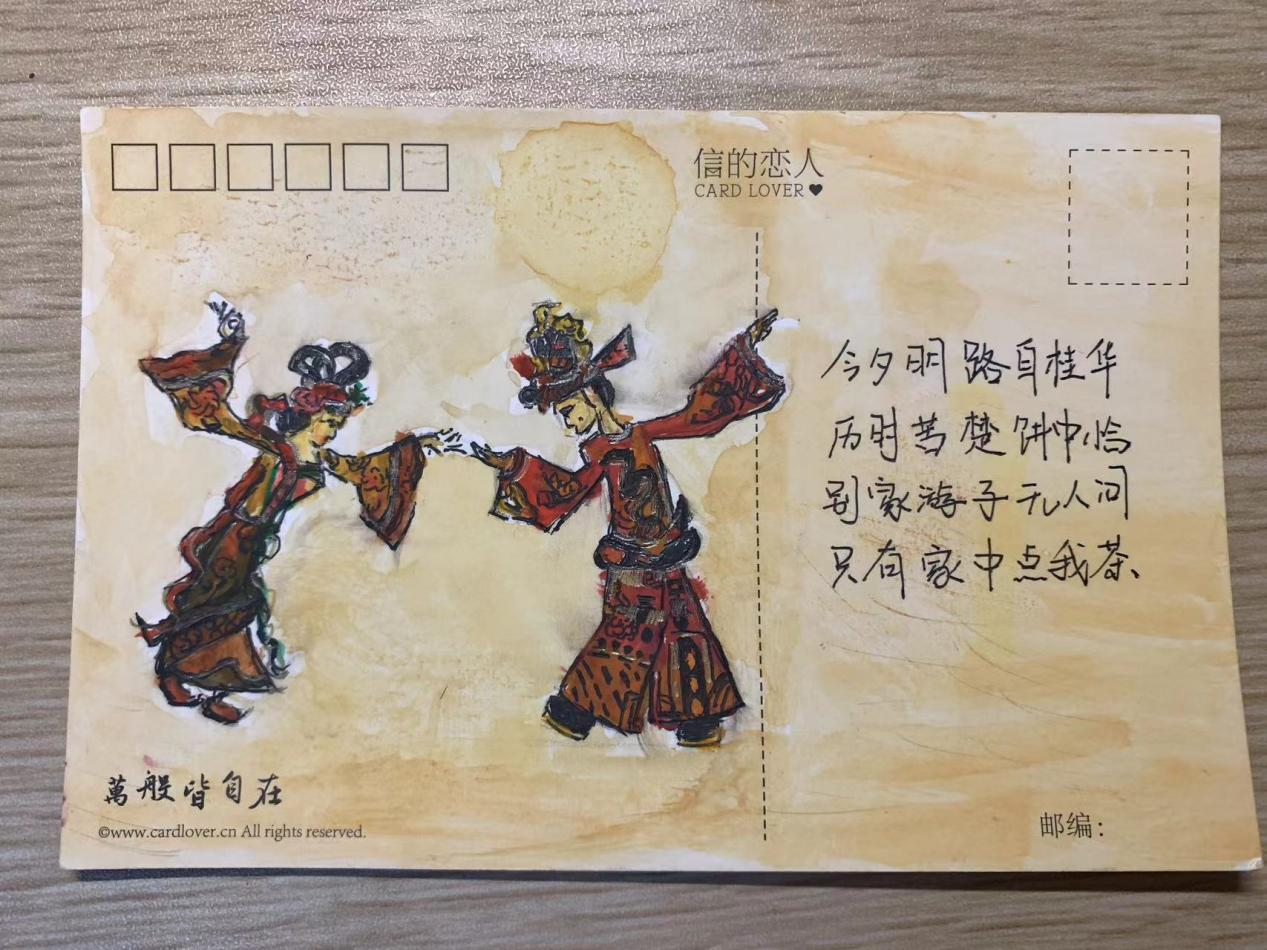 信的恋人
CARD LOVER
今夕明路自桂华
历时苦楚饼中恰
别家游子无人问
只有家中点我茶、
萬般皆自在
©www.cardlover.cn All rights reserved.
邮编: